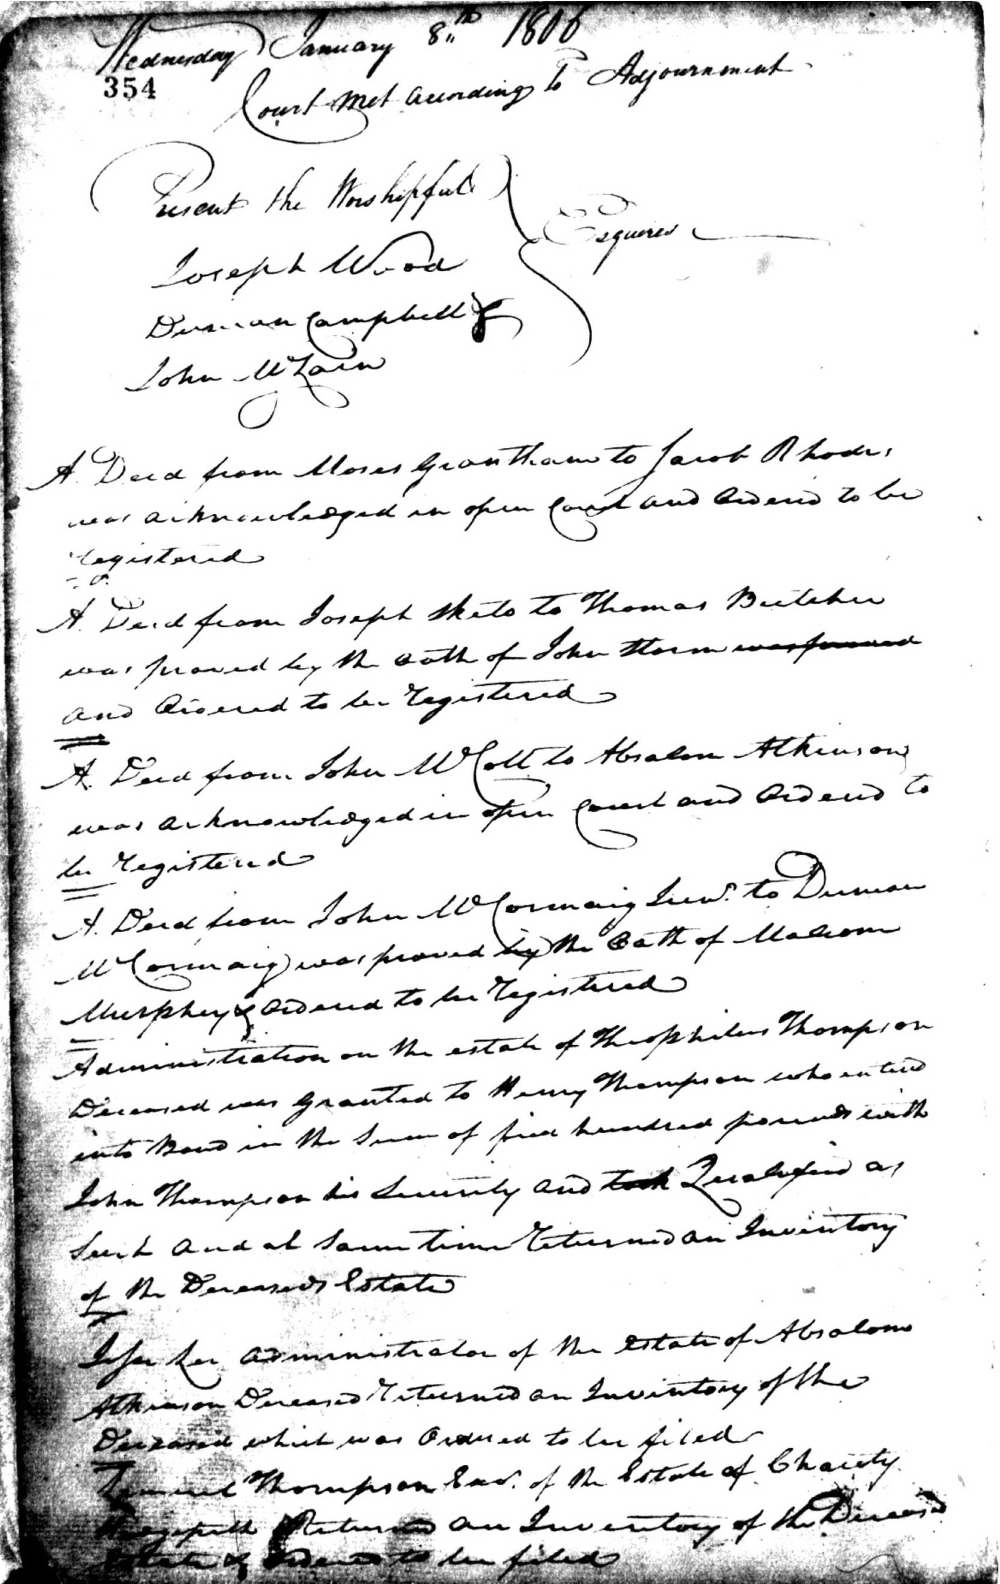 Wednesday January 8th 1806
354
Court Met According to Adjournment
Present the Worshipful
Esqueres
Joseph Wood
Duncan Campbell &
John McLain
A Deed from Moses Grantham to Jacob Rhodes
was acknowledged in open Court and Ordered to be
registered
A Deed from Joseph to Thomas Butcher
was proved by the oath of John Storm was proved
and Ordered to be Registered
A Deed from John McColl to Absalom Atkinson
was acknowledged in open Court and Ordered to
be Registered
A Deed from John McCormaig Senr. to Duncan
McCormaig was proved by the Oath of Malcom
Murphey & Ordered to be Registered
Administration on the estate of Theophilus Thompson
Deceased was granted to Henry Thompson who entered
into Bond in the Sum of five hundred pounds with
John Thompson his Security and took Qualified as
Such and at Same time Returned an Inventory
of the Deceaseds Estate
Lee Administrator of the Estate of Absalom
Atkinson Deceased Returned an Inventory of the
Deceased which was Ordered to be filed
Thompson Exr. of the Estate of Charity
Returned an Inventory of the Deceased
Estate & Ordered to be filed